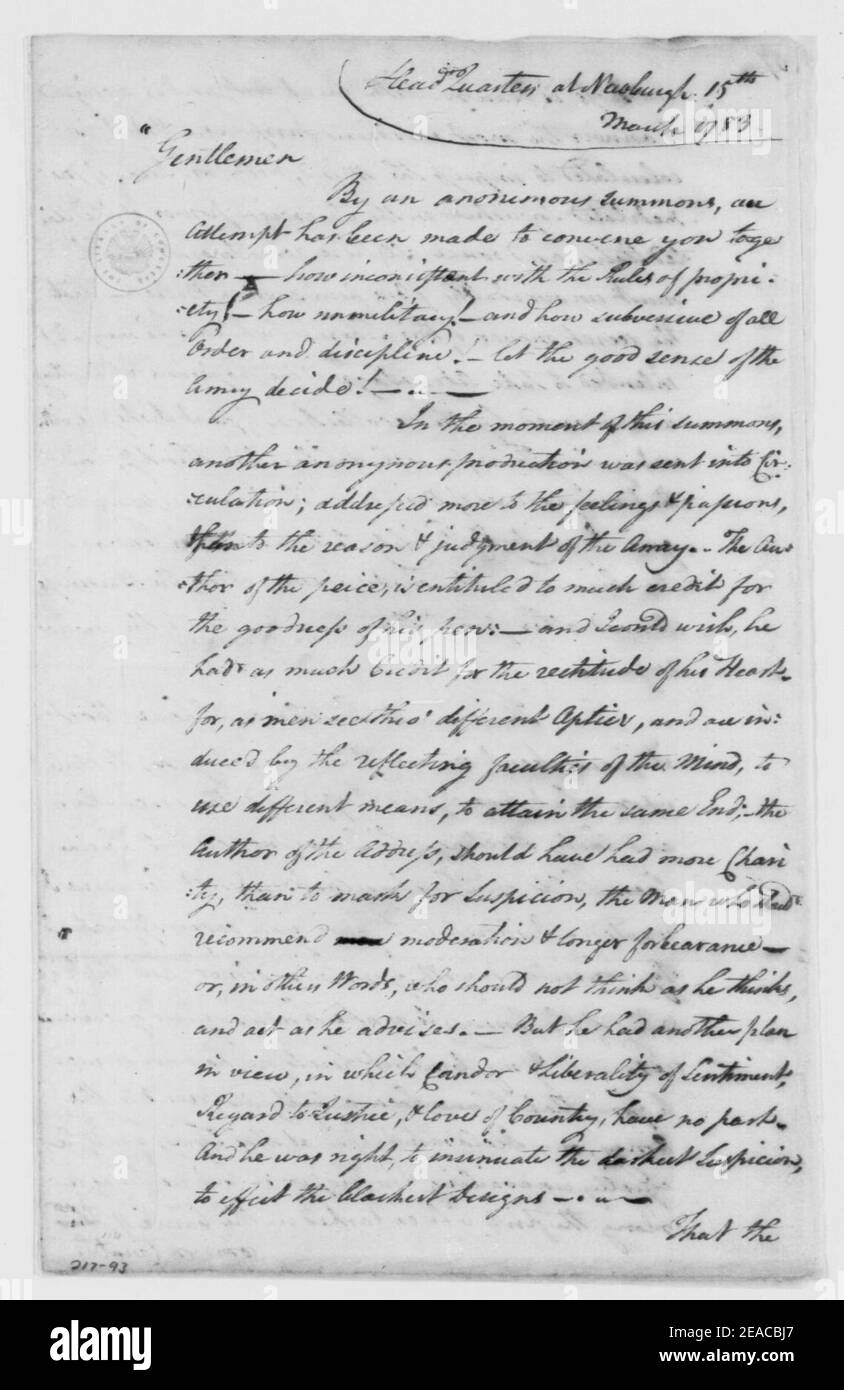 Head Quarters at Newburgh 15th
March 1783.
"Gentlemen
By an anonimous summons, an
attempt has been made to convene you toge
:ther — how inconsistent with the Rules of propri-
:ety! – how unmilitary! – and how subversive of all
Order and discipline! – let the good sense of the
Army decide! –.–
In the moment of this summons,
another anonymous production was sent into Cir:
:culation; addressed more to the feelings & passions,
than to the reason & judgment of the Army. – The Au:
:thor of the peice, is entituled to much credit for
the goodness of his pen: – and I could wish, he
had as much Credit for the rectitude of his Heart –
for, as men see thro' different Optics, and are in:
duced by the reflecting faculties of the Mind, to
use different means, to attain the same End; – the
Author of the Address, should have had more Chari
:ty, than to mark for Suspicion, the Man who should
recommend moderation & longer forbearance –
or, in other Words, who should not think as he thinks,
and act as he advises. – But he had another plan
in view, in which Candor & Liberality of Sentiment,
Regard to Justice, & love of Country, have no part –
And he was right, to insinuate the darkest Suspicion,
to effect the blackest Designs –.–
That the
217-93
alamy
alamy
Image ID: 2EACBJ7
www.alamy.com